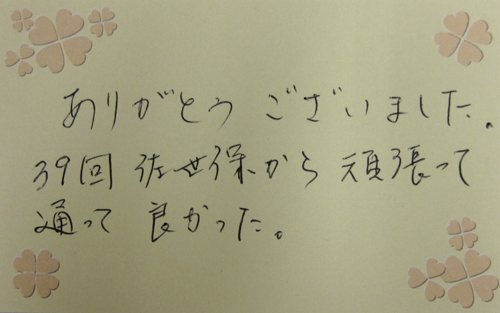 ありがとう ございました。
39回 佐世保から 頑張って
通って 良かった。